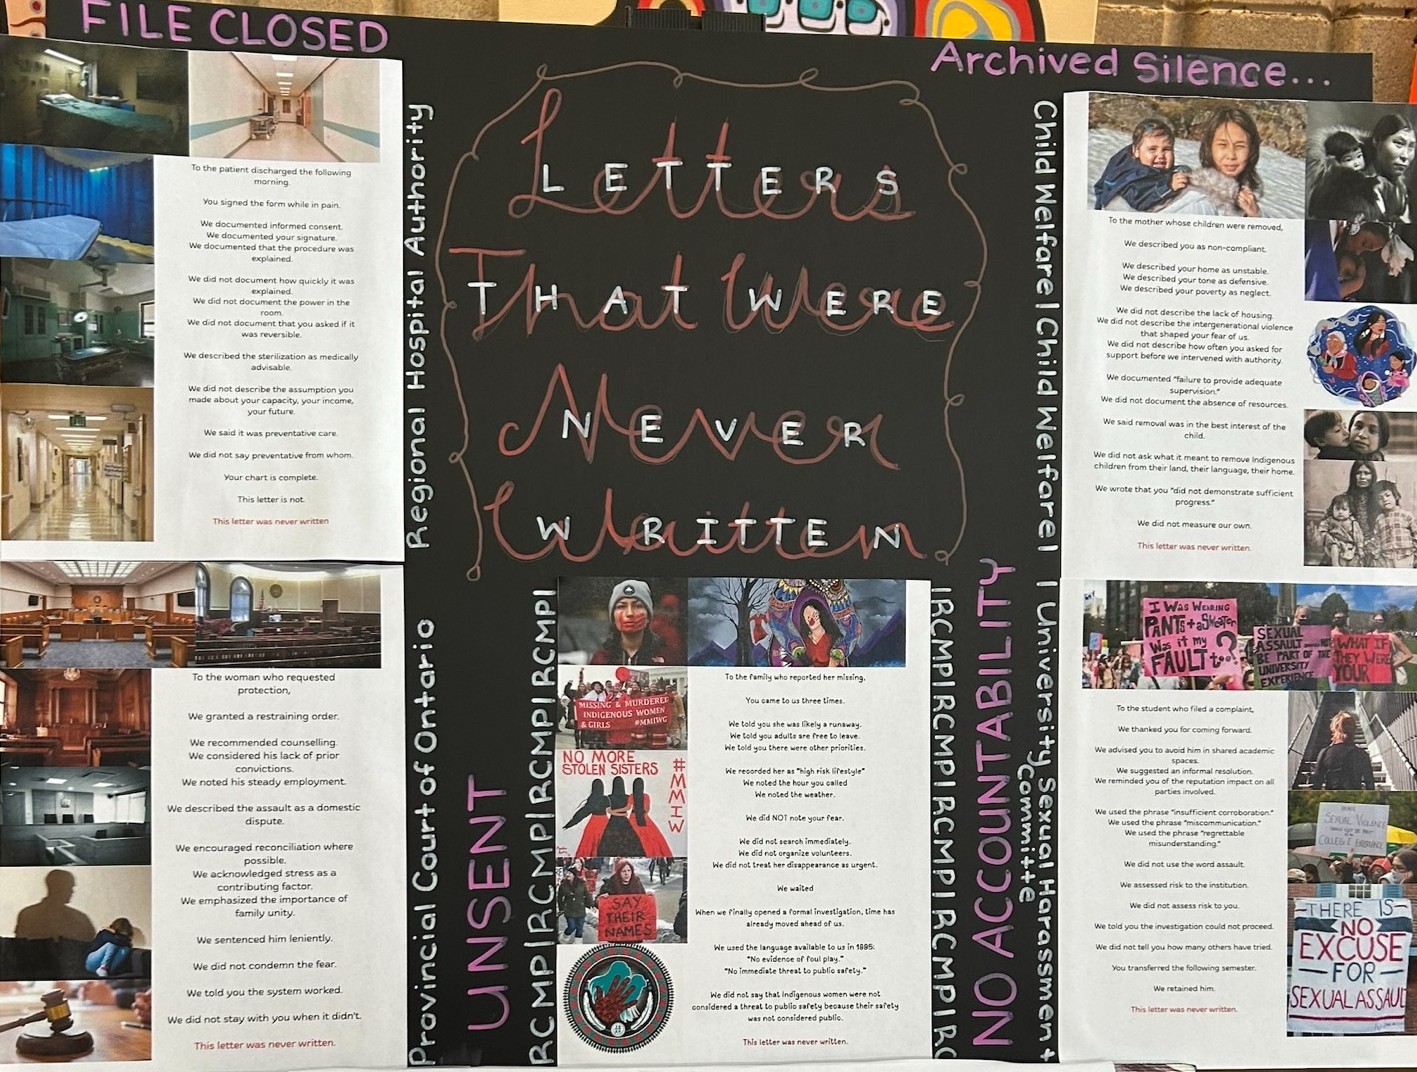 FILE CLOSED
Archived Silence...
Letters
LETTERS
That Were
THAT WERE
Never
NEVER
Written
WRITTEN
Regional Hospital Authority
To the patient discharged the following
morning.
You signed the form while in pain.
We documented informed consent.
We documented your signature.
We documented that the procedure was
explained.
We did not document how quickly it was
explained.
We did not document the power in the
room.
We did not document that you asked if it
was reversible.
We described the sterilization as medically
advisable.
We did not describe the assumption you
made about your capacity, your income,
your future.
We said it was preventative care.
We did not say preventative from whom.
Your chart is complete.
This letter is not.
This letter was never written
Child Welfare | Child Welfare | Child Welfare |
To the mother whose children were removed,
We described you as non-compliant.
We described your home as unstable.
We described your tone as defensive.
We described your poverty as neglect.
We did not describe the lack of housing.
We did not describe the intergenerational violence
that shaped your fear of us.
We did not describe how often you asked for
support before we intervened with authority.
We documented "failure to provide adequate
supervision."
We did not document the absence of resources.
We said removal was in the best interest of the
child.
We did not ask what it meant to remove Indigenous
children from their land, their language, their home.
We wrote that you "did not demonstrate sufficient
progress."
We did not measure our own.
This letter was never written.
Provincial Court of Ontario
To the woman who requested
protection,
We granted a restraining order.
We recommended counselling.
We considered his lack of prior
convictions.
We noted his steady employment.
We described the assault as a domestic
dispute.
We encouraged reconciliation where
possible.
We acknowledged stress as a
contributing factor.
We emphasized the importance of
family unity.
We sentenced him leniently.
We did not condemn the fear.
We told you the system worked.
We did not stay with you when it didn't.
This letter was never written.
UNSENT
RCMP|RCMP|RCMP|RCMP|RCMP|
MISSING & MURDERED
INDIGENOUS WOMEN
& GIRLS #MMIWG
NO MORE
STOLEN SISTERS
#MMIW
SAY
THEIR
NAMES
To the family who reported her missing,
You came to us three times.
We told you she was likely a runaway.
We told you adults are free to leave.
We told you there were other priorities.
We recorded her as "high risk lifestyle"
We noted the hour you called
We noted the weather.
We did NOT note your fear.
We did not search immediately.
We did not organize volunteers.
We did not treat her disappearance as urgent.
We waited
When we finally opened a formal investigation, time has
already moved ahead of us.
We used the language available to us in 1995:
"No evidence of foul play."
"No immediate threat to public safety."
We did not say that indigenous women were not
considered a threat to public safety because their safety
was not considered public.
This letter was never written.
|RCMP|RCMP|RCMP|RCMP|RC
NO ACCOUNTABILITY
| University Sexual Harassment
Committe
I WAS WEARING
PANTS + a SWEATER
WAS it my
FAULT too?
SEXUAL
ASSAULT
BE PART OF THE
UNIVERSITY
EXPERIENCE
WHAT IF
THEY WERE
YOUR
To the student who filed a complaint,
We thanked you for coming forward.
We advised you to avoid him in shared academic
spaces.
We suggested an informal resolution.
We reminded you of the reputation impact on all
parties involved.
We used the phrase "insufficient corroboration."
We used the phrase "miscommunication."
We used the phrase "regrettable
misunderstanding."
We did not use the word assault.
We assessed risk to the institution.
We did not assess risk to you.
We told you the investigation could not proceed.
We did not tell you how many others have tried.
You transferred the following semester.
We retained him.
This letter was never written.
SEXUAL VIOLENCE
COLLEGE EXPERIENCE
THERE IS
NO
EXCUSE
FOR
SEXUAL ASSAUL